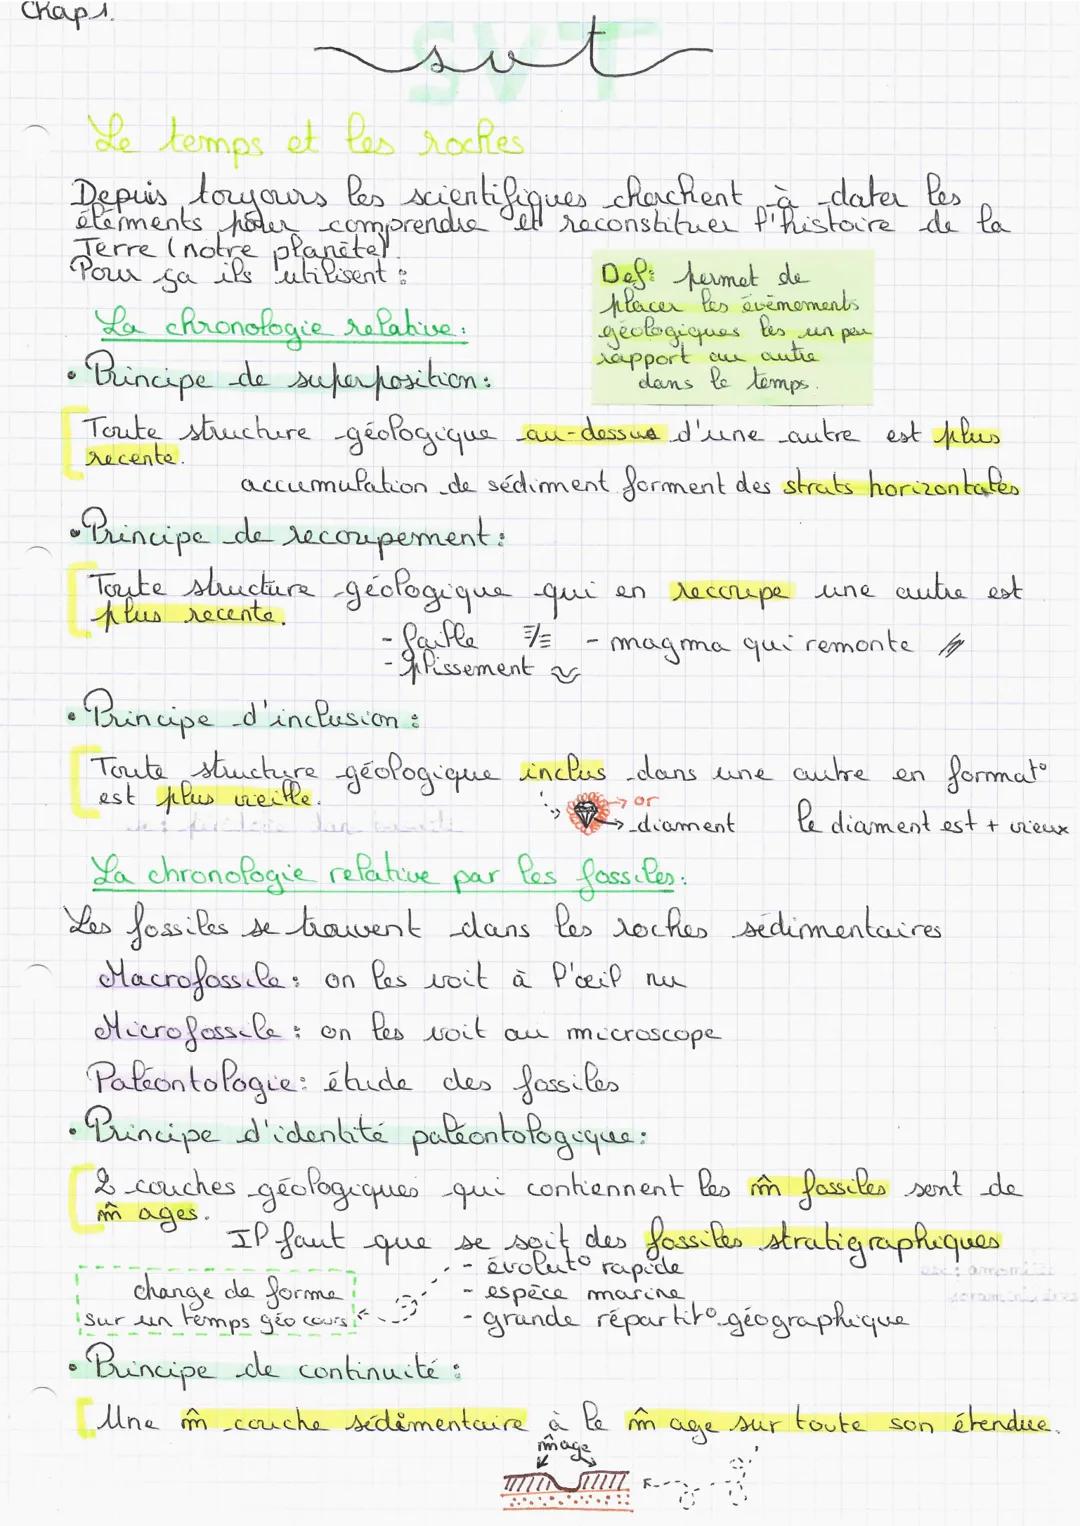 Chap 1.
SVT
svt
Le temps et les roches
Depuis toujours les scientifiques cherchent à dater les
éléments pour comprendre et reconstituer l'histoire de la
Terre (notre planète).
Pour ça ils utilisent :
Def: permet de
placer les évènements
géologiques les un par
rapport au autre
dans le temps.
La chronologie relative :
• Principe de superposition :
Toute structure géologique au-dessus d'une autre est plus
recente.
accumulation de sédiment forment des strats horizontales
• Principe de recoupement :
Toute structure géologique qui en recoupe une autre est
plus recente.
- faille - magma qui remonte
- plissement
• Principe d'inclusion :
Toute structure géologique inclus dans une autre en format°
est plus vieille.
→ or
→ diament le diament est + vieux
La chronologie relative par les fossiles :
Les fossiles se trouvent dans les roches sédimentaires
Macrofossile : on les voit à l'œil nu
Microfossile : on les voit au microscope
Paléontologie : étude des fossiles
• Principe d'identité paléontologique :
2 couches géologiques qui contiennent les m̂ fossiles sont de
m̂ ages.
Il faut que se soit des fossiles stratigraphiques
- évolut° rapide
- espèce marine
- grande répartit° géographique
change de forme
sur un temps géo cours
• Principe de continuité :
Une m̂ couche sédimentaire à le m̂ age sur toute son étendue.
m̂ age